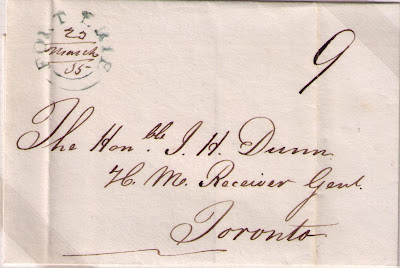 FORT ERIE
20
March
35
9
The Honble. J. H. Dunn
H. M. Receiver Genl.
Toronto